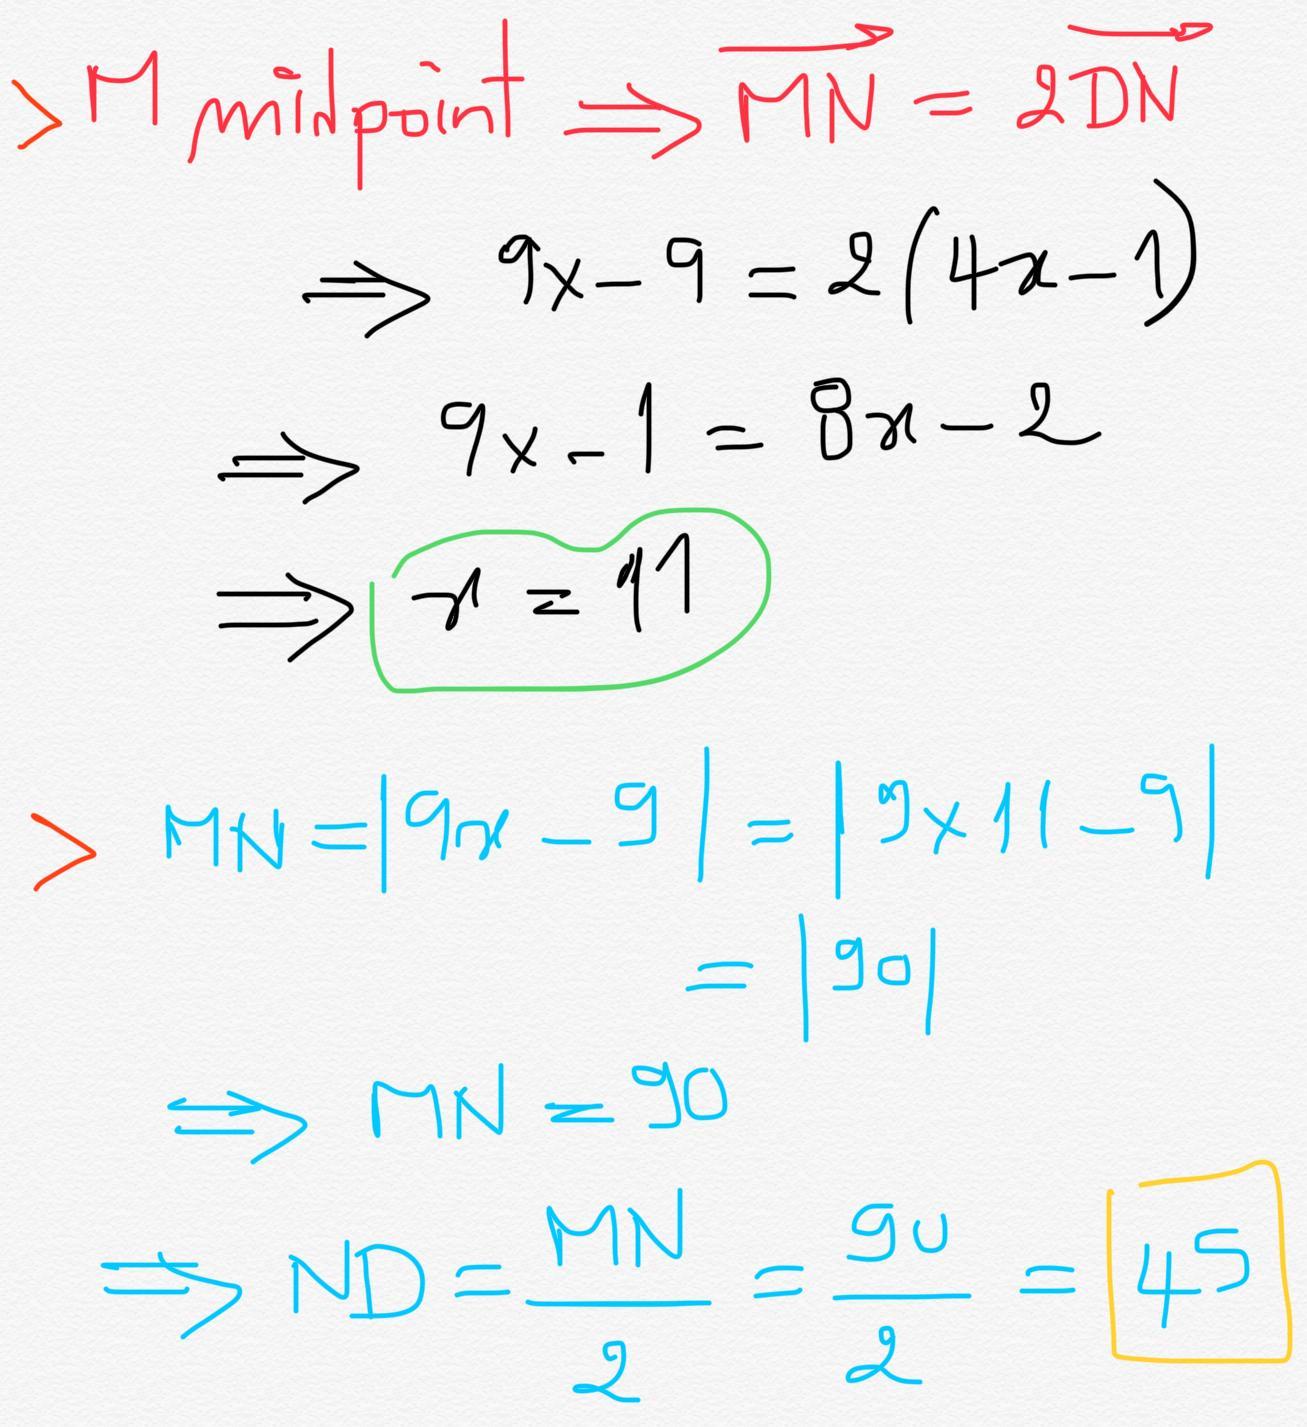 > M midpoint ⟹ \overrightarrow{MN} = 2\overrightarrow{DN}
⟹ 9x - 9 = 2(4x - 1)
⟹ 9x - 1 = 8x - 2
⟹ x = 11
> MN = |9x - 9| = |9 × 11 - 9|
= |90|
⟹ MN = 90
⟹ ND = \frac{MN}{2} = \frac{90}{2} = 45